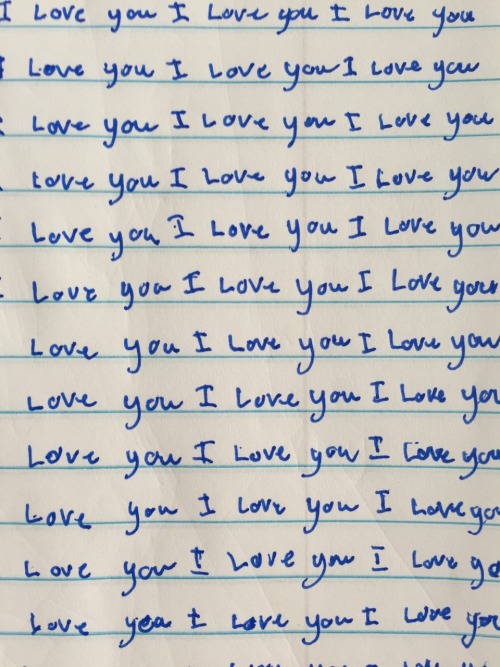 I Love you I Love you I Love you
I Love you I Love you I Love you
Love you I Love you I Love you
Love you I Love you I Love you
Love you I Love you I Love you
Love you I Love you I Love your
Love you I Love you I Love you
Love you I Love you I Love you
Love you I Love you I Love you
Love you I Love you I Love you
Love you I Love you I Love yo
Love yea I Love you I Love you